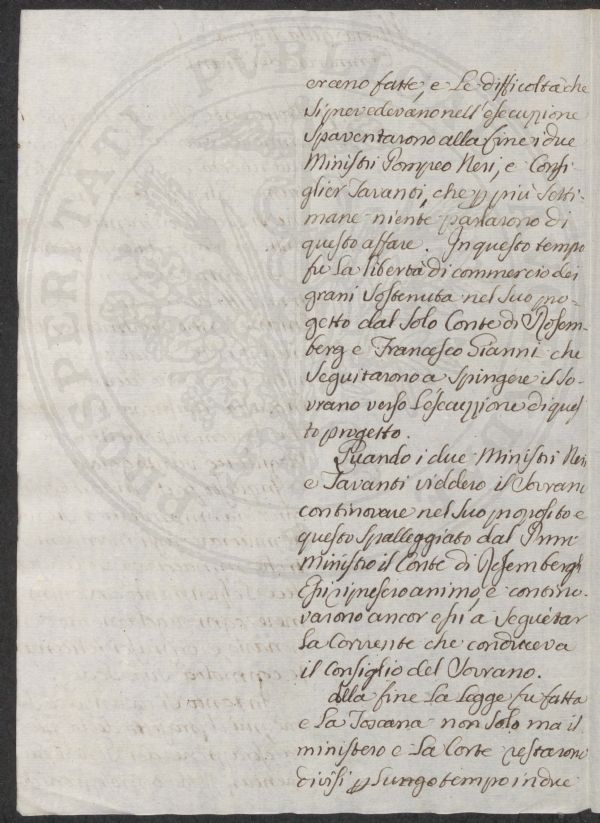 erano fatte, e le difficoltà che
si prevedevano nell'esecuzione
spaventarono alla fine i due
Ministri Pompeo Neri, e Consi-
glier Tavanti, che p più setti-
mane niente parlarono di
questo affare. In questo tempo
fu la libertà di commercio dei
grani sostenuta nel suo pro-
getto dal solo Conte di Rosem-
berg e Francesco Gianni che
seguitarono a spingere il So-
vrano verso l'esecuzione di ques
to progetto.
Quando i due Ministri Neri
e Tavanti viddero il Sovrano
continovare nel suo proposito e
questo spalleggiato dal Primo
ministro il Conte di Rosembergh
Essi ripresero animo, e contino-
varono ancor essi a seguitar
la Corrente che conduceva
il Consiglio del Sovrano.
Alla fine la Legge fu fatta
e la Toscana non solo ma il
ministero e la Corte restarono
divisi p lungo tempo in due
PROSPERITATI PUBLICAE